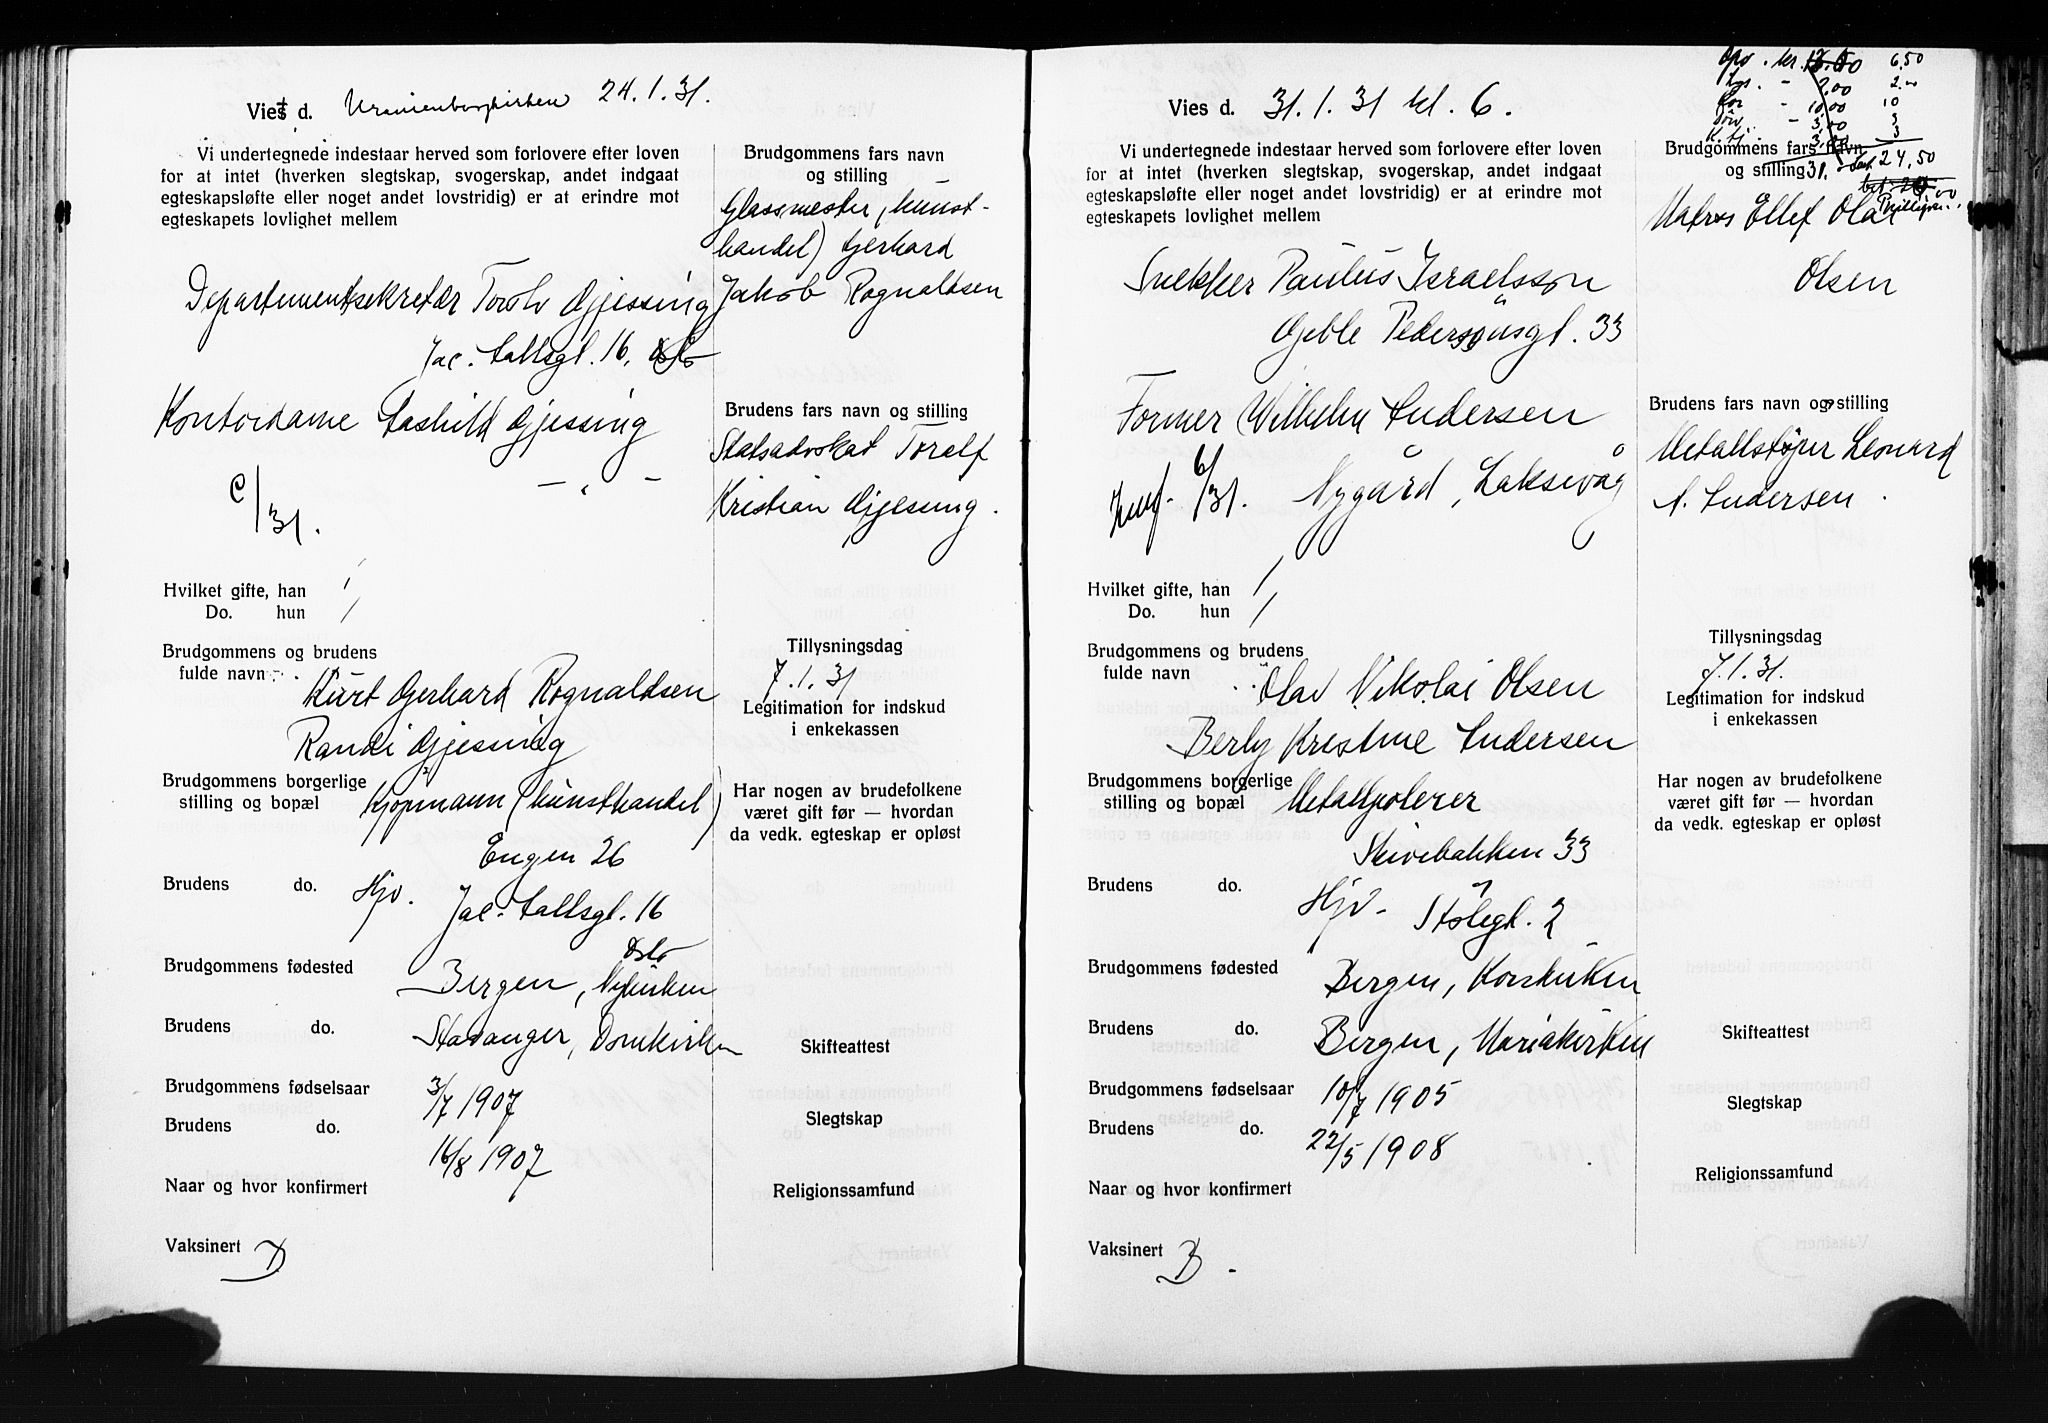 Viet d. Uranienborgkirken 24.1.31.
Vi undertegnede indestaar herved som forlovere efter loven
for at intet (hverken slegtskap, svogerskap, andet indgaat
egteskapsløfte eller noget andet lovstridig) er at erindre mot
egteskapets lovlighet mellem
Brudgommens fars navn
og stilling
Glassmester (kunst-
handel) Gerhard
Jakob Rognaldsen
Departementsekretær Torolv Gjessing
Jac. Aallsgt. 16, Oslo
Kontordame Aashild Gjessing
— „ —
Brudens fars navn og stilling
Statsadvokat Toralf
Kristian Gjessing.
/31.
Hvilket gifte, han 1
Do. hun 1
Brudgommens og brudens
fulde navn
Kurt Gerhard Rognaldsen
Randi Gjessing
Tillysningsdag
7.1.31
Legitimation for indskud
i enkekassen
Brudgommens borgerlige
stilling og bopæl Kjøpmann (kunsthandel)
Engen 26
Har nogen av brudefolkene
været gift før — hvordan
da vedk. egteskap er opløst
Brudens do. Hjv. Jac. Aallsgt. 16
Oslo
Brudgommens fødested Bergen, Nykirken
Brudens do. Stavanger, Domkirken
Skifteattest
Brudgommens fødselsaar 3/7 1907
Slegtskap
Brudens do. 16/8 1907
Naar og hvor konfirmert
Religionssamfund
Vaksinert
Vies d. 31.1.31 kl. 6.
kr. 6.50
2.00 2.00
10.00 10
3.00 3
3
24,50
Vi undertegnede indestaar herved som forlovere efter loven
for at intet (hverken slegtskap, svogerskap, andet indgaat
egteskapsløfte eller noget andet lovstridig) er at erindre mot
egteskapets lovlighet mellem
Brudgommens fars navn
og stilling
Matros Ellef Olai
Olsen
Snekker Paulus Israelsson
Gjeble Pedersønsgt. 33
Former Wilhelm Andersen
6/31. Nygård, Laksevåg
Brudens fars navn og stilling
Metallstøper Leonard
A. Andersen.
Hvilket gifte, han 1
Do. hun 1
Brudgommens og brudens
fulde navn
Olav Nikolai Olsen
Berly Kristine Andersen
Tillysningsdag
7.1.31.
Legitimation for indskud
i enkekassen
Brudgommens borgerlige
stilling og bopæl Metallpolerer
Skivebakken 33
Har nogen av brudefolkene
været gift før — hvordan
da vedk. egteskap er opløst
Brudens do. Hjv. Stølegt. 2
Brudgommens fødested Bergen, Korskirken
Brudens do. Bergen, Mariakirken
Skifteattest
Brudgommens fødselsaar 10/7 1905
Slegtskap
Brudens do. 22/5 1908
Religionssamfund
Naar og hvor konfirmert
Vaksinert